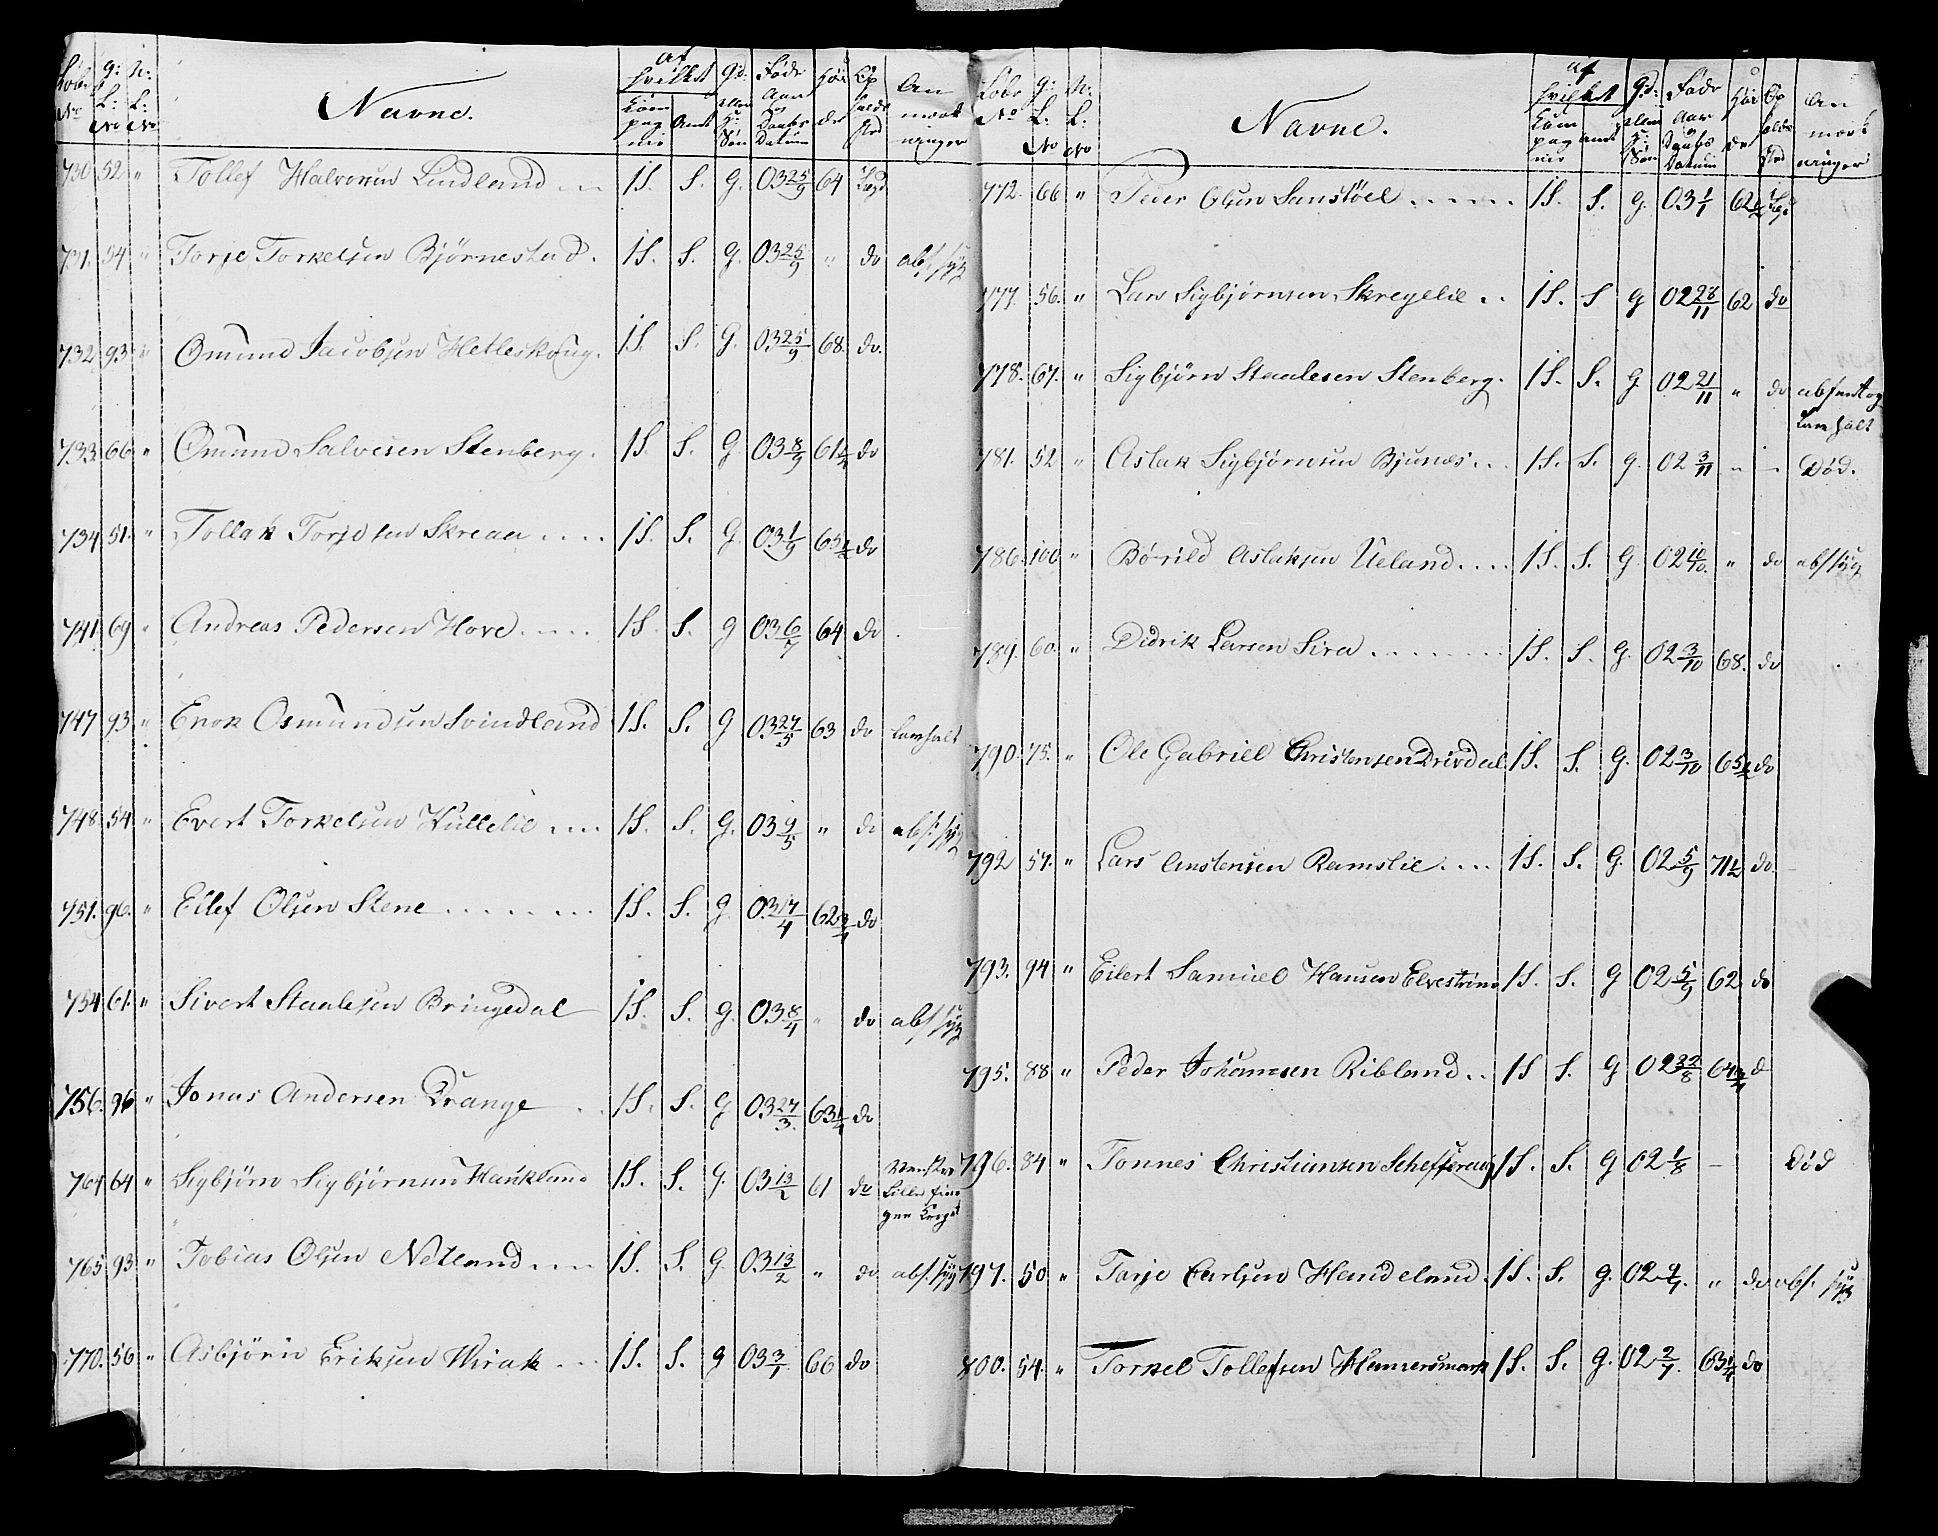 Løbe No g: L: No N: L: No Navne. af hvilket Kom pag nie Amt gd: eller H: Søn Føde Aar og Daabs Datum Høi de Op holds sted An mærk ninger
730. 52 " Tollef Halvorsen Lindland .. 1S. S. G. 03 25/9 64 i Lægd
731. 54 " Torje Torkelsen Bjørnestad. 1S. S. G. 03 25/9 " do abs. syg
732 93 " Omund Jacobsen Hetleskoug. 1S. S. G. 03 25/9 68. do.
733. 66 " Omund Salvesen Stenberg. 1S. S. G. 03 8/9 61 1/2 do
734 51. " Tollak Torjosen Skreaa .... 1S. S. G. 03 1/9 65 1/2 do
741 69 " Andreas Pedersen Hove..... 1S. S. g 03 6/7 64 do
747 93 " Enok Osmundsen Svindland 1S. S. g 03 27/5 63 do lamhalt
748 54 " Evert Torkelsen Küllelie .... 1S. S. G. 03 9/5 " do abs. syg
751. 96. " Ellef Olsen Stene ....... 1S. S. G. 03 17/4 62 3/4 do
754 61. " Sivert Staalesen Bringedal 1S. S. g. 03 8/4 " do abs syg
756. 96 " Jonas Andersen Drange .. 1S. S. g 03 27/3. 63 1/4 do
764 64 " Sigbjørn Sigbjørnsen Haukland 1S. S. G. 03 13/2 61 do Venstre Lille fin ger Krogst
765 93 " Tobias Olsen Netland .... 1S. S. G. 03 13/2 " do abs. syg
770. 56 " Asbjørn Eriksen Wirak ... 1S. S. g 03 3/1 66 do
Løbe No g: L: No N: L: No Navne. af hvilket Kom pag nie Amt gd: eller H: Søn Føde Aar og Daabs Datum Høi de Op holds sted An mærk ninger
772. 66 " Peder Olsen Sanstöel ...... 1S. S. G. 03 1/1 62 1/2 i Lægd
777. 56. " Lars Sigbjørnsen Skregelie .. 1S. S g 02 28/11 62 do
778. 67. " Sigbjørn Staalesen Stenberg. 1S. S. G 02 21/11 " do absent og Lamhalt
781. 52 " Aslak Sigbjørnsen Bjunes... 1S. S. g. 02 3/11 " " Död.
786. 100 " Bórild Aslaksen Ueland.... 1S. S. G 02 10/10. " do abs syg
789. 60. " Didrik Larsen Sira ....... 1S. S. G. 02 3/10 68. do
790. 75. " Ole Gabriel Christensen Drivdal 1S. S. G. 02 3/10 65 1/4 do
792 57. " Lars Anstensen Ramslie.... 1S. S. G. 02 5/9 71 1/2 do
793. 94 " Eilert Samuel Hansen Elvestrøm 1S. S. g 02 5/9 62 do
795. 88 " Peder Johannesen Ribland.. 1S S. g 02 22/8 64 3/4 d
796. 84 " Tonnes Christiansen 1S. S. g 02 1/8 — Död
797. 50 " Tarje Carlsen Handeland. 1S. S. g. 02 9/7. " do abs. syg
800. 54. " Torkel Tollefsen Hamersmark 1S. S. g. 02 2/7. 63 1/4 do